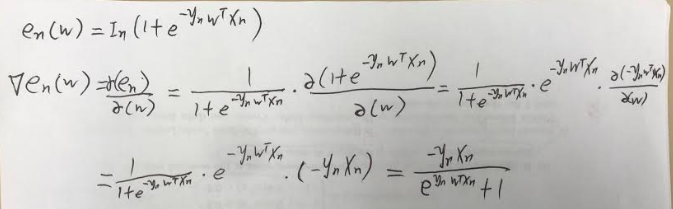 eₙ(w) = Iₙ (1+e^{-yₙ wᵀxₙ})
∇eₙ(w) = ∂(eₙ)/∂(w) = 1/(1+e^{-yₙ wᵀxₙ}) · ∂(1+e^{-yₙ wᵀxₙ})/∂(w) = 1/(1+e^{-yₙ wᵀxₙ}) · e^{-yₙ wᵀxₙ} · ∂(-yₙ wᵀxₙ)/∂(w)
= 1/(1+e^{-yₙ wᵀxₙ}) · e^{-yₙ wᵀxₙ} · (-yₙ xₙ) = -yₙ xₙ/(e^{yₙ wᵀxₙ} + 1)